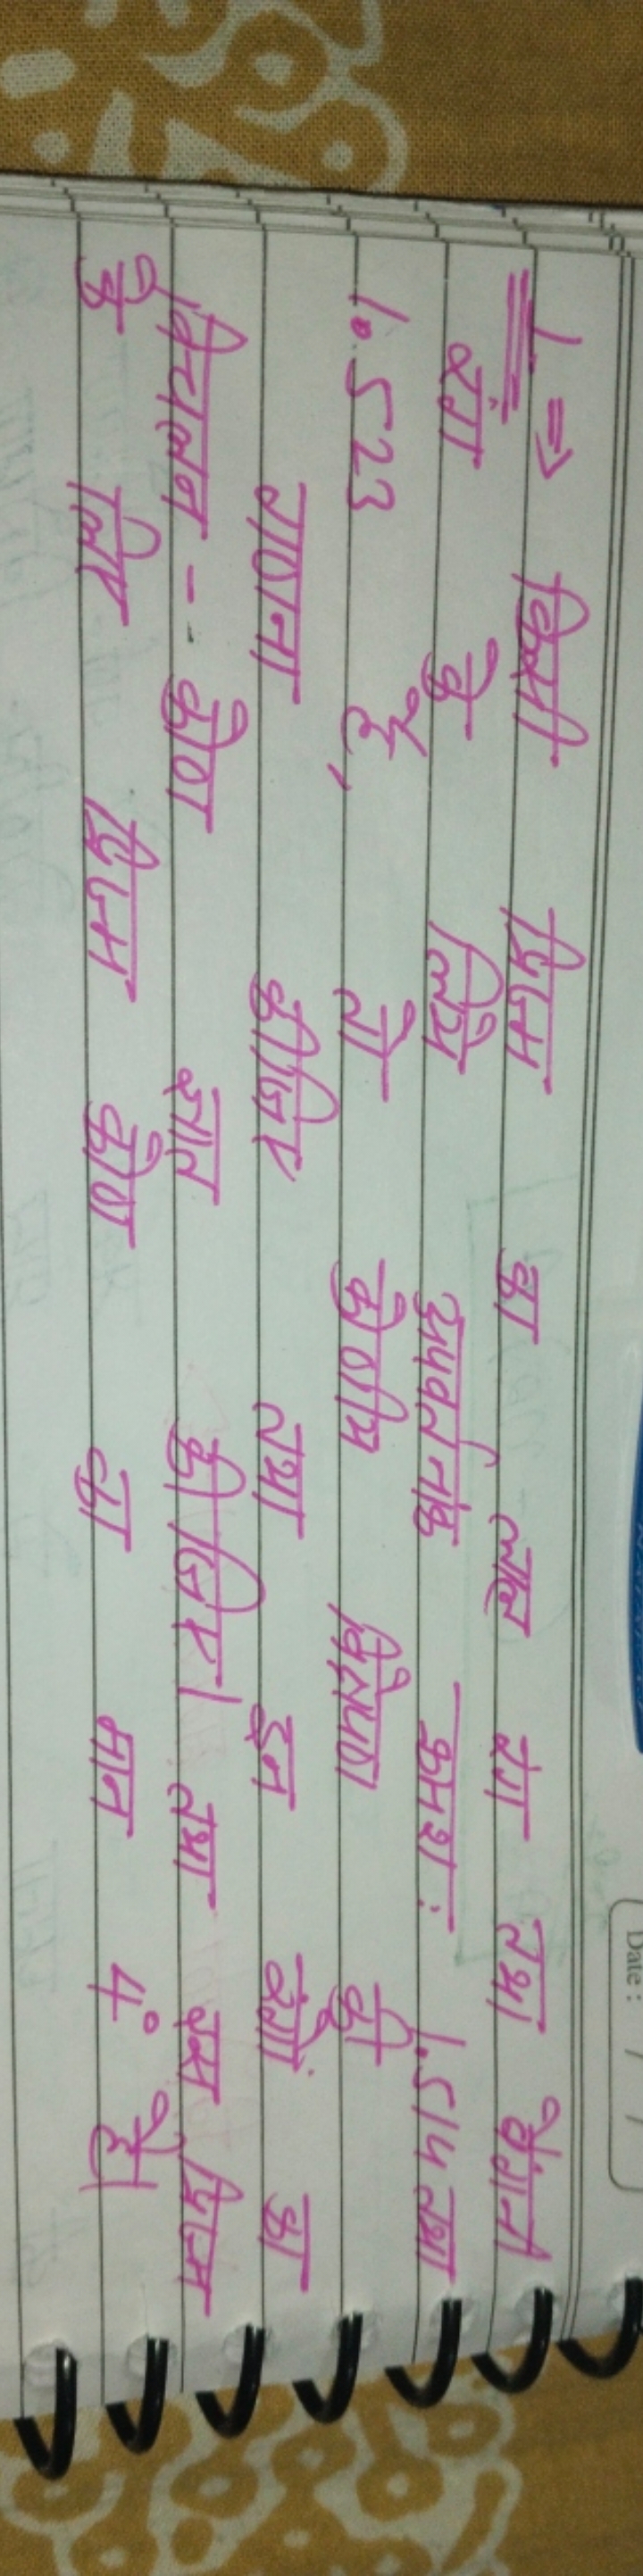 Date: / /
1 ⇒ किसी प्रिज्म का लाल रंग तथा बैंगनी
रंग के लिये अपवर्तनांक क्रमश: 1.514 तथा
1.523 है, तो कोणीय विक्षेपण की
गणना कीजिए तथा इन रंगों का
विचलन - कोण ज्ञात कीजिए। तथा उस प्रिज्म
के लिए प्रिज्म कोण का मान 4° है।